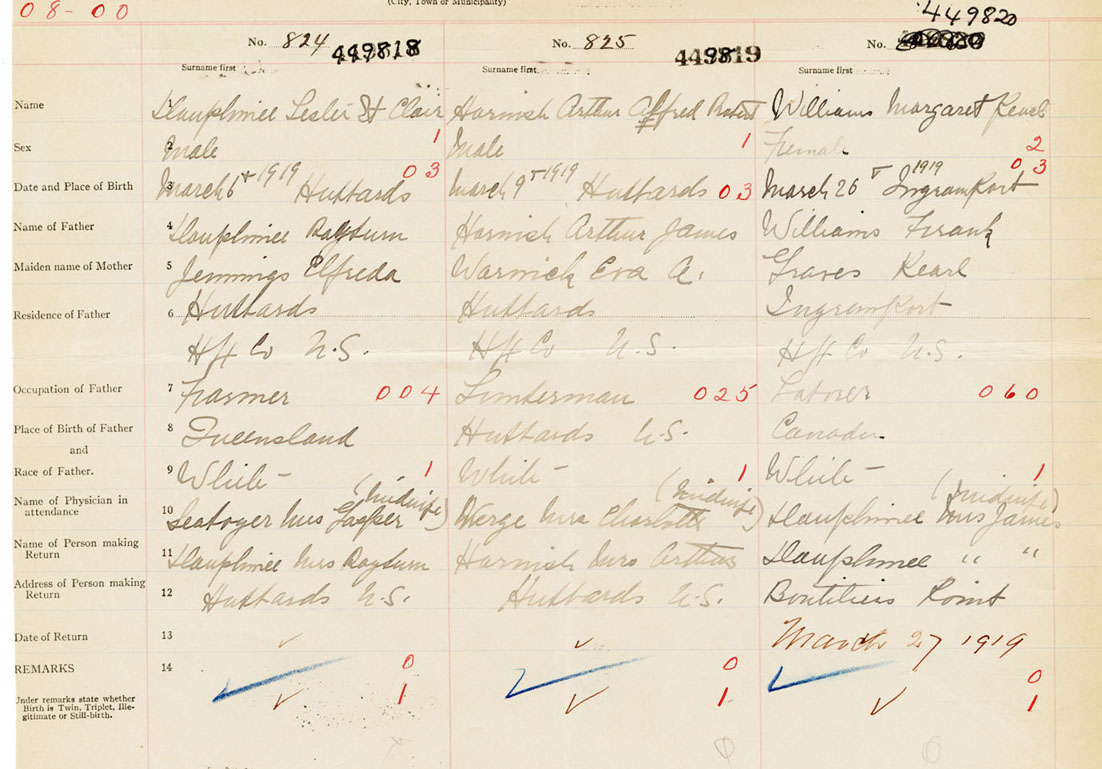 (City, Town or Municipality)
08-00
449820
No. 824 449818 No. 825 449819 No.
Surname first Surname first Surname first
Name Dauphinee Leslie St Clair Harnish Arthur Alfred Robert Williams Margaret Pearl
Sex 2 Male 1 Male 1 Female 2
Date and Place of Birth 3 March 6th 1919 Hubbards 03 March 9th 1919 Hubbards 03 March 26th 1919 Ingramport 03
Name of Father 4 Dauphinee Rayburn Harnish Arthur James Williams Frank
Maiden name of Mother 5 Jennings Elfreda Warnick Eva A. Graves Pearl
Residence of Father 6 Hubbards Hubbards Ingramport
Hfx Co N.S. Hfx Co N.S. Hfx Co N.S.
Occupation of Father 7 Farmer 004 Lumberman 025 Laborer 060
Place of Birth of Father 8 Queensland Hubbards N.S. Canada
and
Race of Father. 9 White 1 White 1 White 1
(Midwife) (Midwife) (Midwife)
Name of Physician in attendance 10 Seaboyer Mrs Jasper Mrs Charlotte Dauphinee Mrs James
Name of Person making Return 11 Dauphinee Mrs Rayburn Harnish Mrs Arthur Dauphinee " "
Address of Person making Return 12 Hubbards N.S. Hubbards N.S. Boutiliers Point
Date of Return 13 March 27 1919
REMARKS 14 0 0 0
Under remarks state whether 1 1 1
Birth is Twin, Triplet, Ille-
gitimate or Still-birth.